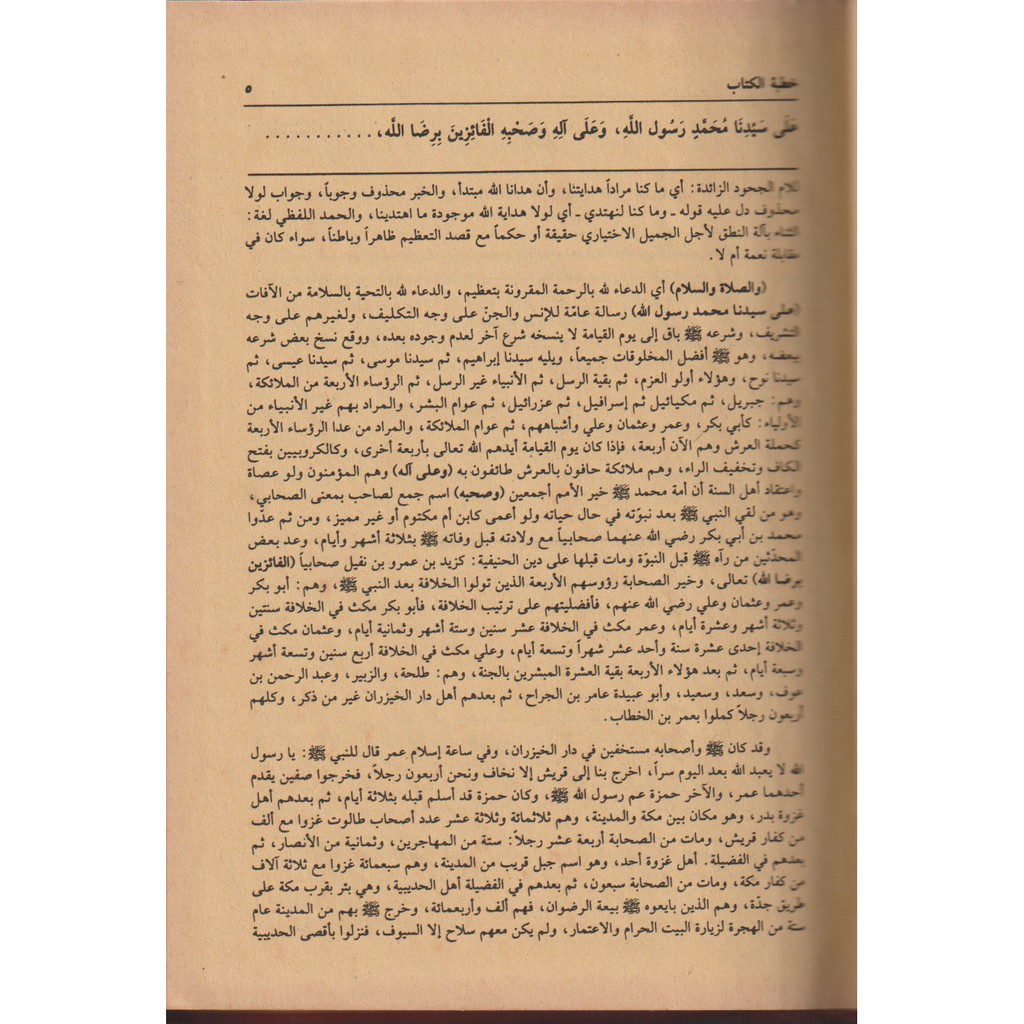 خطبة الكتاب ٥
عَلَى سَيِّدِنَا مُحَمَّدٍ رَسُولِ اللَّهِ، وَعَلَى آلِهِ وَصَحْبِهِ الْفَائِزِينَ بِرِضَا اللَّهِ، . . . . . . . . . . .
للام الجحود الزائدة: أي ما كنا مراداً هدايتنا، وأن هدانا الله مبتدأ، والخبر محذوف وجوباً، وجواب لولا
محذوف دل عليه قوله ـ وما كنا لنهتدي ـ أي لولا هداية الله موجودة ما اهتدينا، والحمد اللفظي لغة:
الثناء بآلة النطق لأجل الجميل الاختياري حقيقة أو حكماً مع قصد التعظيم ظاهراً وباطناً، سواء كان في
مقابلة نعمة أم لا.
(والصلاة والسلام) أي الدعاء لله بالرحمة المقرونة بتعظيم، والدعاء لله بالتحية بالسلامة من الآفات
(على سيدنا محمد رسول الله) رسالة عامّة للإنس والجنّ على وجه التكليف، ولغيرهم على وجه
التشريف، وشرعه ﷺ باق إلى يوم القيامة لا ينسخه شرع آخر لعدم وجوده بعده، ووقع نسخ بعض شرعه
ببعضه، وهو ﷺ أفضل المخلوقات جميعاً، ويليه سيدنا إبراهيم، ثم سيدنا موسى، ثم سيدنا عيسى، ثم
سيدنا نوح، وهؤلاء أولو العزم، ثم بقية الرسل، ثم الأنبياء غير الرسل، ثم الرؤساء الأربعة من الملائكة،
وهم: جبريل، ثم ميكائيل ثم إسرافيل، ثم عزرائيل، ثم عوام البشر، والمراد بهم غير الأنبياء من
الأولياء: كأبي بكر، وعمر وعثمان وعلي وأشباههم، ثم عوام الملائكة، والمراد من عدا الرؤساء الأربعة
كحملة العرش وهم الآن أربعة، فإذا كان يوم القيامة أيدهم الله تعالى بأربعة أخرى، وكالكروبيين بفتح
الكاف وتخفيف الراء، وهم ملائكة حافون بالعرش طائفون به (وعلى آله) وهم المؤمنون ولو عصاة
واعتقاد أهل السنة أن أمة محمد ﷺ خير الأمم أجمعين (وصحبه) اسم جمع لصاحب بمعنى الصحابي،
وهو من لقي النبي ﷺ بعد نبوّته في حال حياته ولو أعمى كابن أم مكتوم أو غير مميز، ومن ثم عدّوا
محمد بن أبي بكر رضي الله عنهما صحابياً مع ولادته قبل وفاته ﷺ بثلاثة أشهر وأيام، وعد بعض
المحدّثين من رآه ﷺ قبل النبوّة ومات قبلها على دين الحنيفية: كزيد بن عمرو بن نفيل صحابياً (الفائزين
برضا الله) تعالى، وخير الصحابة رؤوسهم الأربعة الذين تولوا الخلافة بعد النبي ﷺ، وهم: أبو بكر
وعمر وعثمان وعلي رضي الله عنهم، فأفضليتهم على ترتيب الخلافة، فأبو بكر مكث في الخلافة سنتين
وثلاثة أشهر وعشرة أيام، وعمر مكث في الخلافة عشر سنين وستة أشهر وثمانية أيام، وعثمان مكث في
الخلافة إحدى عشرة سنة وأحد عشر شهراً وتسعة أيام، وعلي مكث في الخلافة أربع سنين وتسعة أشهر
وسبعة أيام، ثم بعد هؤلاء الأربعة بقية العشرة المبشرين بالجنة، وهم: طلحة، والزبير، وعبد الرحمن بن
عوف، وسعد، وسعيد، وأبو عبيدة عامر بن الجراح، ثم بعدهم أهل دار الخيزران غير من ذكر، وكلهم
أربعون رجلاً كملوا بعمر بن الخطاب.
وقد كان ﷺ وأصحابه مستخفين في دار الخيزران، وفي ساعة إسلام عمر قال للنبي ﷺ: يا رسول
الله لا يعبد الله بعد اليوم سراً، اخرج بنا إلى قريش إلا نخاف ونحن أربعون رجلاً، فخرجوا صفين يقدم
أحدهما عمر، والآخر حمزة عم رسول الله ﷺ، وكان حمزة قد أسلم قبله بثلاثة أيام، ثم بعدهم أهل
غزوة بدر، وهو مكان بين مكة والمدينة، وهم ثلاثمائة وثلاثة عشر عدد أصحاب طالوت غزوا مع ألف
من كفار قريش، ومات من الصحابة أربعة عشر رجلاً: ستة من المهاجرين، وثمانية من الأنصار، ثم
بعدهم في الفضيلة. أهل غزوة أحد، وهو اسم جبل قريب من المدينة، وهم سبعمائة غزوا مع ثلاثة آلاف
من كفار مكة، ومات من الصحابة سبعون، ثم بعدهم في الفضيلة أهل الحديبية، وهي بئر بقرب مكة على
طريق جدّة، وهم الذين بايعوه ﷺ بيعة الرضوان، فهم ألف وأربعمائة، وخرج ﷺ بهم من المدينة عام
ستة من الهجرة لزيارة البيت الحرام والاعتمار، ولم يكن معهم سلاح إلا السيوف، فنزلوا بأقصى الحديبية